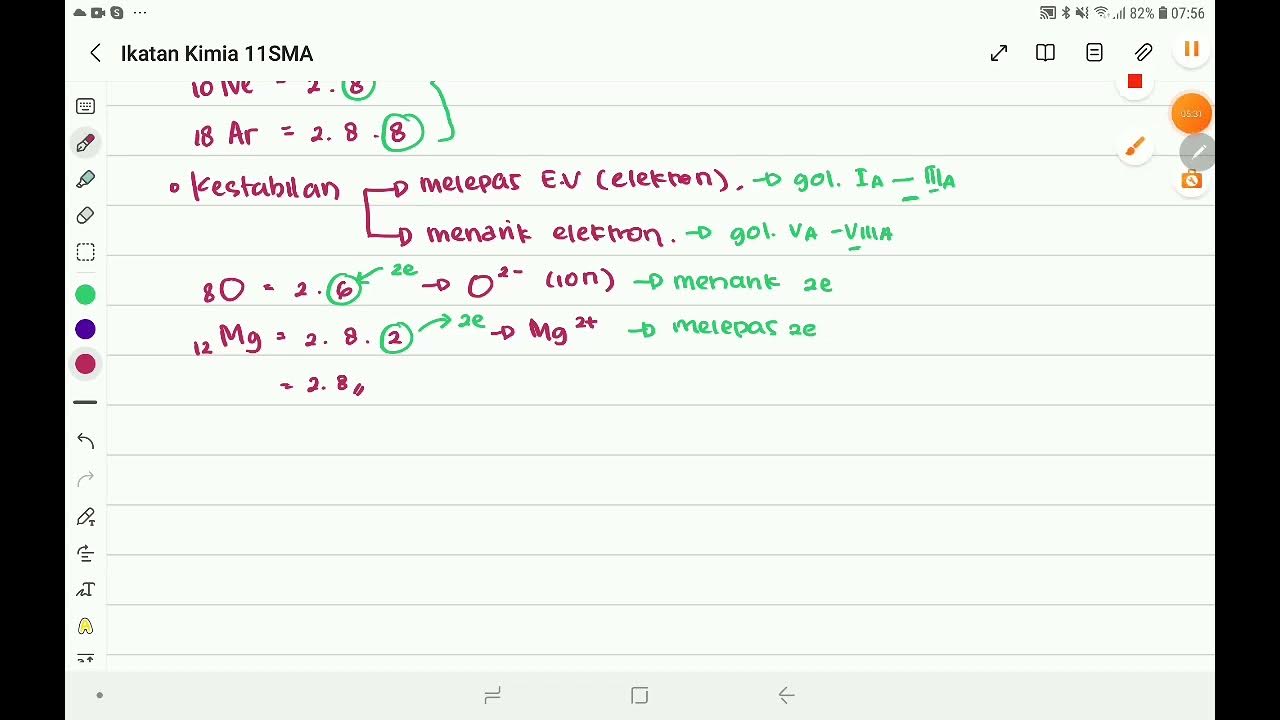 82% 07:56
Ikatan Kimia 11SMA
05:31
10 Ne = 2. 8
18 Ar = 2. 8 . 8
• Kestabilan → melepas E.V (elektron). → gol. IA – IIIA
→ menarik elektron. → gol. VA – VIIIA
8O = 2. 6 2e → O²⁻ (ion) → menarik 2e
12 Mg = 2. 8. 2 → 2e → Mg²⁺ → melepas 2e
= 2. 8,,